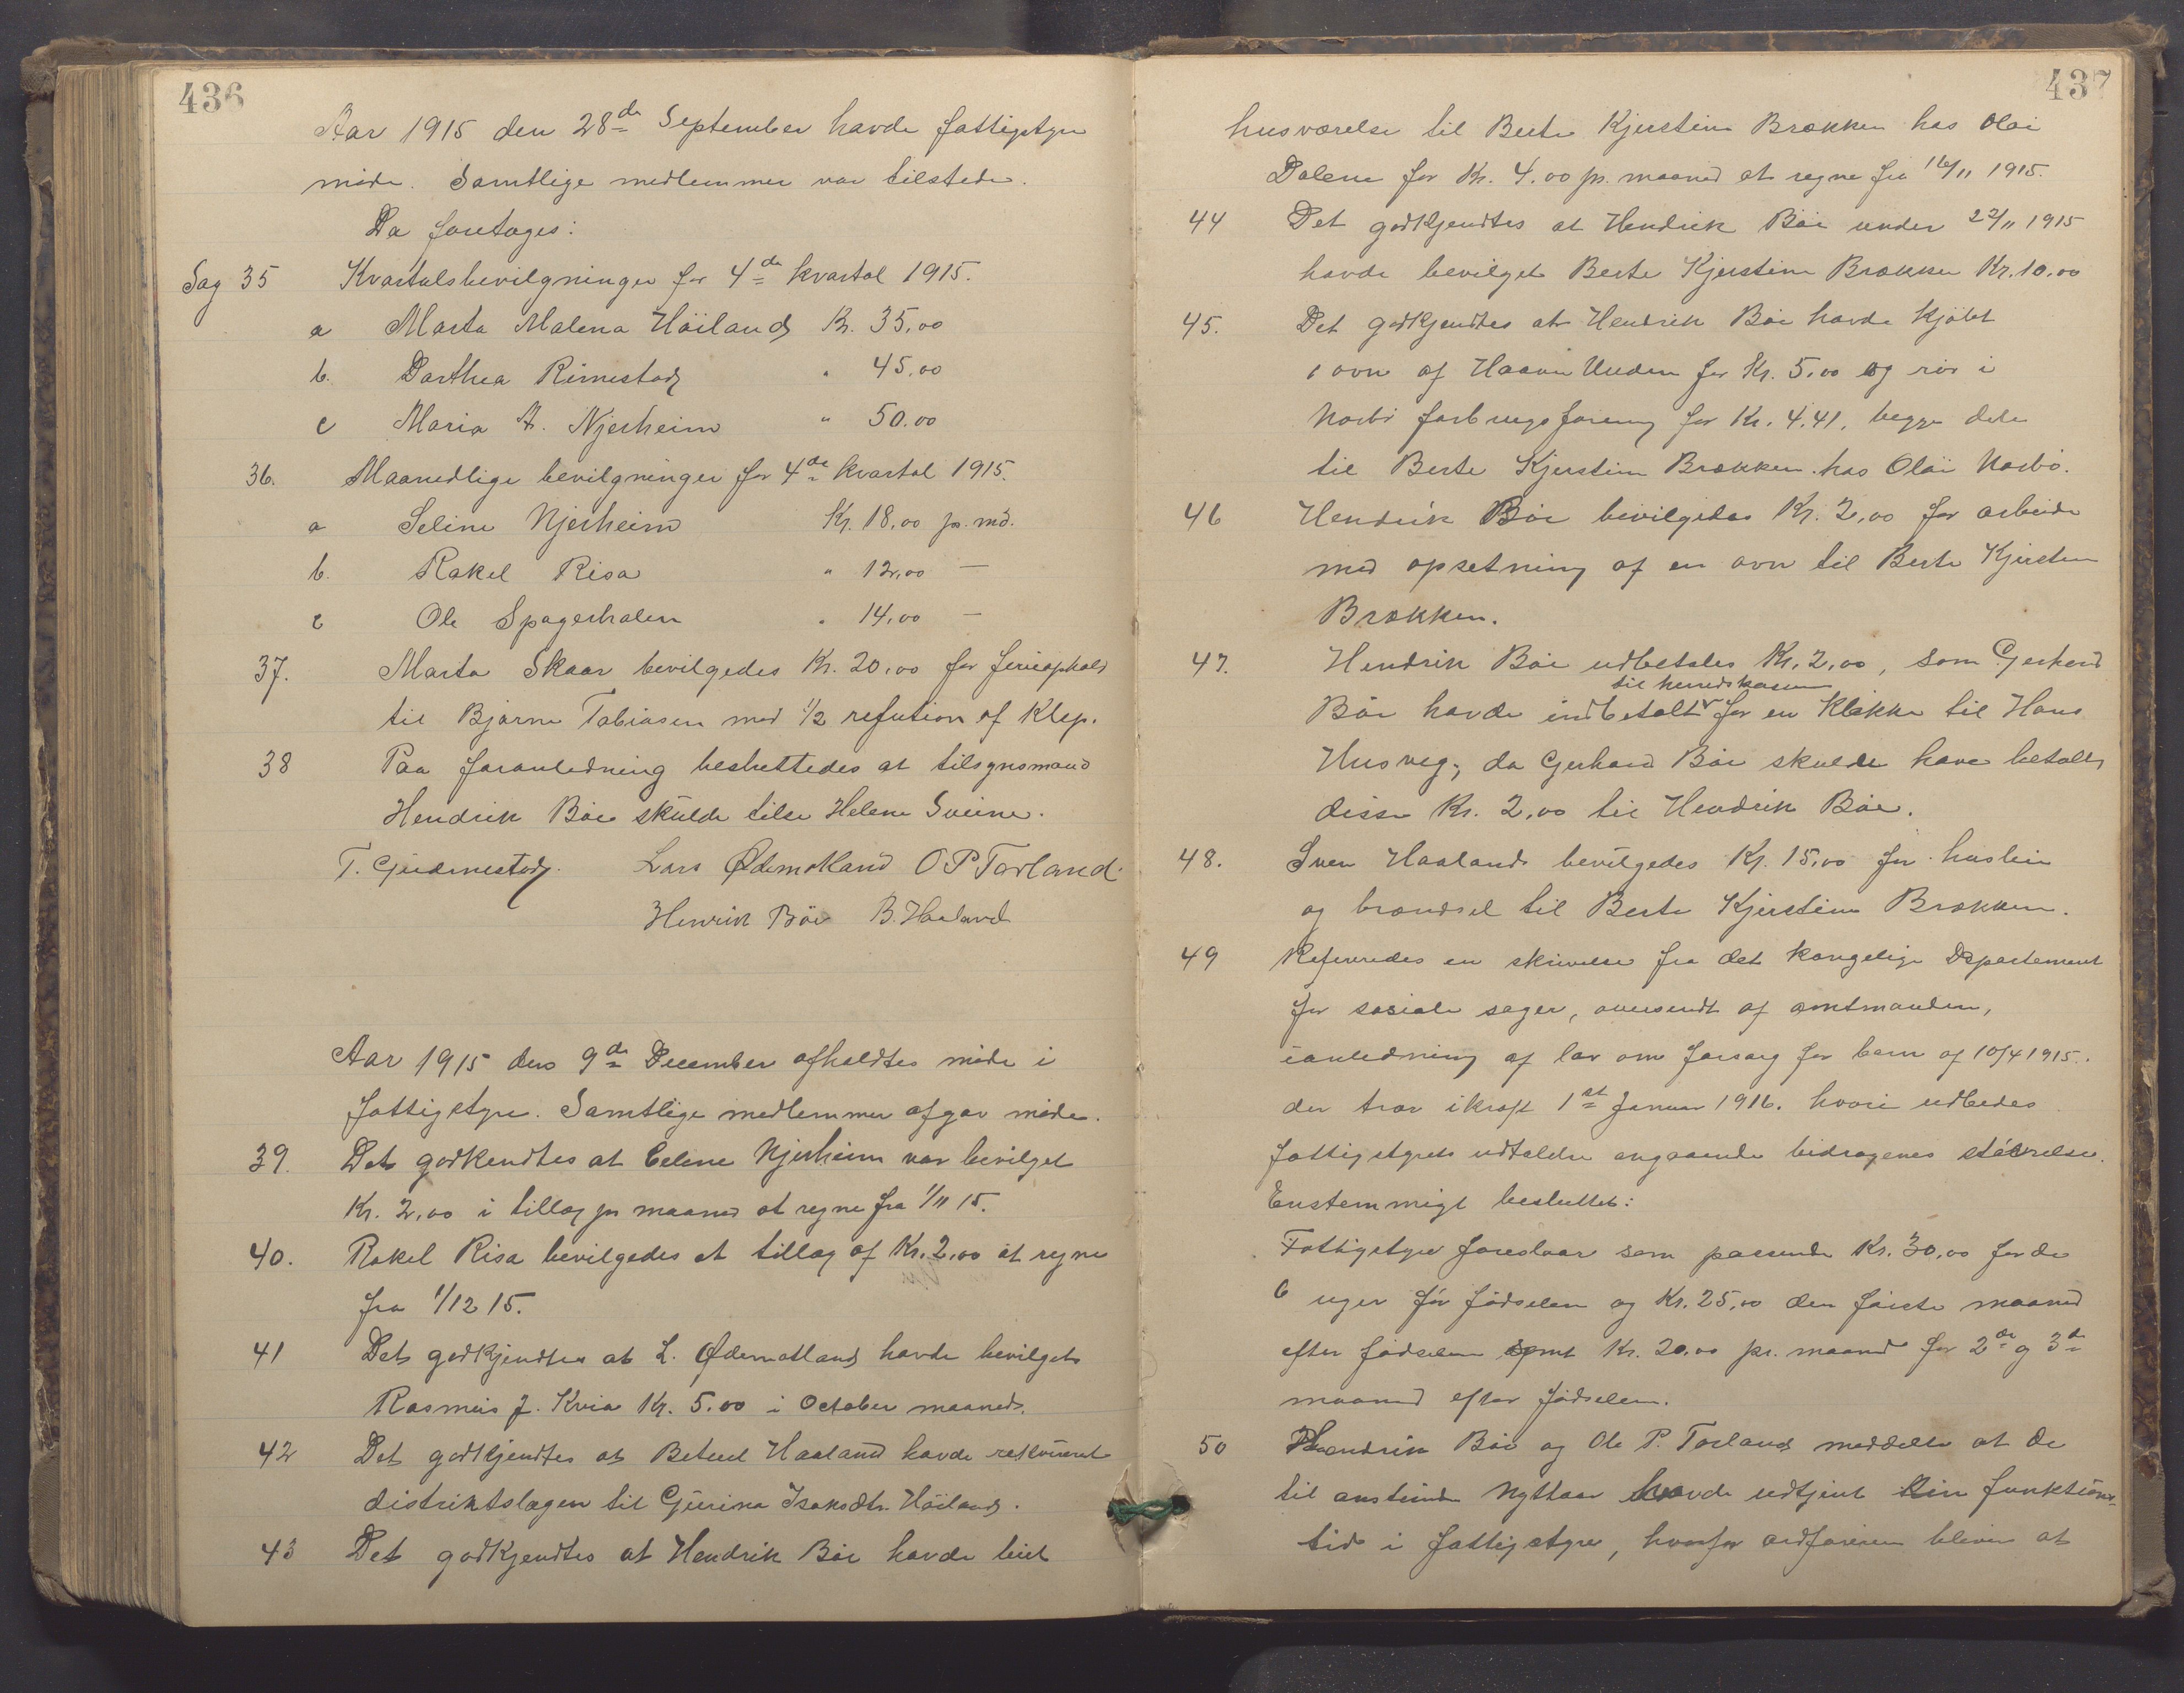 436
Aar 1915 den 28de September havde fattigstyre
møde. Samtlige medlemmer var tilstede.
Da foretoges:
Sag 35 Kvartalsbevilgninger for 4de kvartal 1915.
a Marta Malena Höiland Kr. 35,00
b. Dorthea Rimestad " 45,00
c Maria A. Njerheim " 50.00
36. Maanedlige bevilgninger for 4de kvartal 1915.
a Seline Njerheim Kr. 18,00 pr. md.
b. Rakel Risa " 12,00 —
c Ole Spagerhalen " 14,00 —
37. Marta Skaar bevilgedes Kr. 20,00 for ferieophold
til Bjarne Tobiasen mod 1/2 refution af Klep.
38 Paa foranledning besluttedes at tilsynsmand
Hendrik Böe skulde tilse Helene Sviine.
T. Gudmestad. Lars Ødemotland O P Torland.
Henrik Böe B. Haaland
Aar 1915 den 9de December afholdtes möde i
fattigstyre. Samtlige medlemmer afgav möde.
39. Det godkendtes at Celene Njerheim var bevilget
Kr. 2,00 i tillæg pr maaned at regne fra 1/11 15.
40. Rakel Risa bevilgedes et tillæg af Kr. 2,00 at regne
fra 1/12 15.
41 Det godkjendtes at L. Ødemotland havde bevilget
Rasmus J. Kvia Kr. 5.00 i October maaned.
42 Det godkjendtes at Betuel Haaland havde rekvireret
distriktslægen til Gurina Isaksdtr. Höiland.
43 Det godkjendtes at Hendrik Böe havde leiet
437
husværelse til Berte Kjerstine Brekken hos Oloi
Dalene for Kr. 4.00 pr. maaned at regne fra 16/11 1915.
44 Det godkjendtes at Hendrik Böe under 22/11 1915
havde bevilget Berte Kjerstine Brekken Kr. 10.00
45. Det godkjendtes at Hendrik Böe havde kjöbt
1 ovn af Haaver Uuden for Kr. 5,00 og rör i
Norbö forbrugsforening for Kr. 4.41, begge dele
til Berte Kjerstine Brekken hos Oloi Norbö.
46 Hendrik Böe bevilgedes Kr. 2,00 for arbeide
med opsetning af en ovn til Berte Kjerstine
Brekken.
47. Hendrik Böe udbetales Kr. 2,00, som Gerhard
til herredskassen
Böe havde indbetalt for en Klokke til Hans
Husveg; da Gerhard Böe skulde have betalt
disse Kr. 2,00 til Hendrik Böe.
48. Sven Haaland bevilgedes Kr. 15,00 for husleie
og brændsel til Berte Kjerstine Brekken.
49 Refereredes en skrivelse fra det kongelige Departement
for sosiale sager, oversendt af amtmanden,
ianledning af lov om forsorg for barn af 10/4 1915.
der træer ikraft 1st Januar 1916. hvori udbedes
fattigstyrets udtalelse angaaende bidragenes störrelse.
Enstemmigt besluttet:
Fattigstyre foreslaar som passende Kr. 30,00 for de
6 uger för fødselen og Kr. 25,00 den förste maaned
efter fødselen samt Kr. 20.00 pr. maaned for 2de og 3de
maaned efter fødselen.
50 Hendrik Böe og Ole P. Torland meddelte at de
til anstundende Nyttaar havde udtjent sin funktions-
tid i fattigstyre, hvorfor ordföreren bliver at